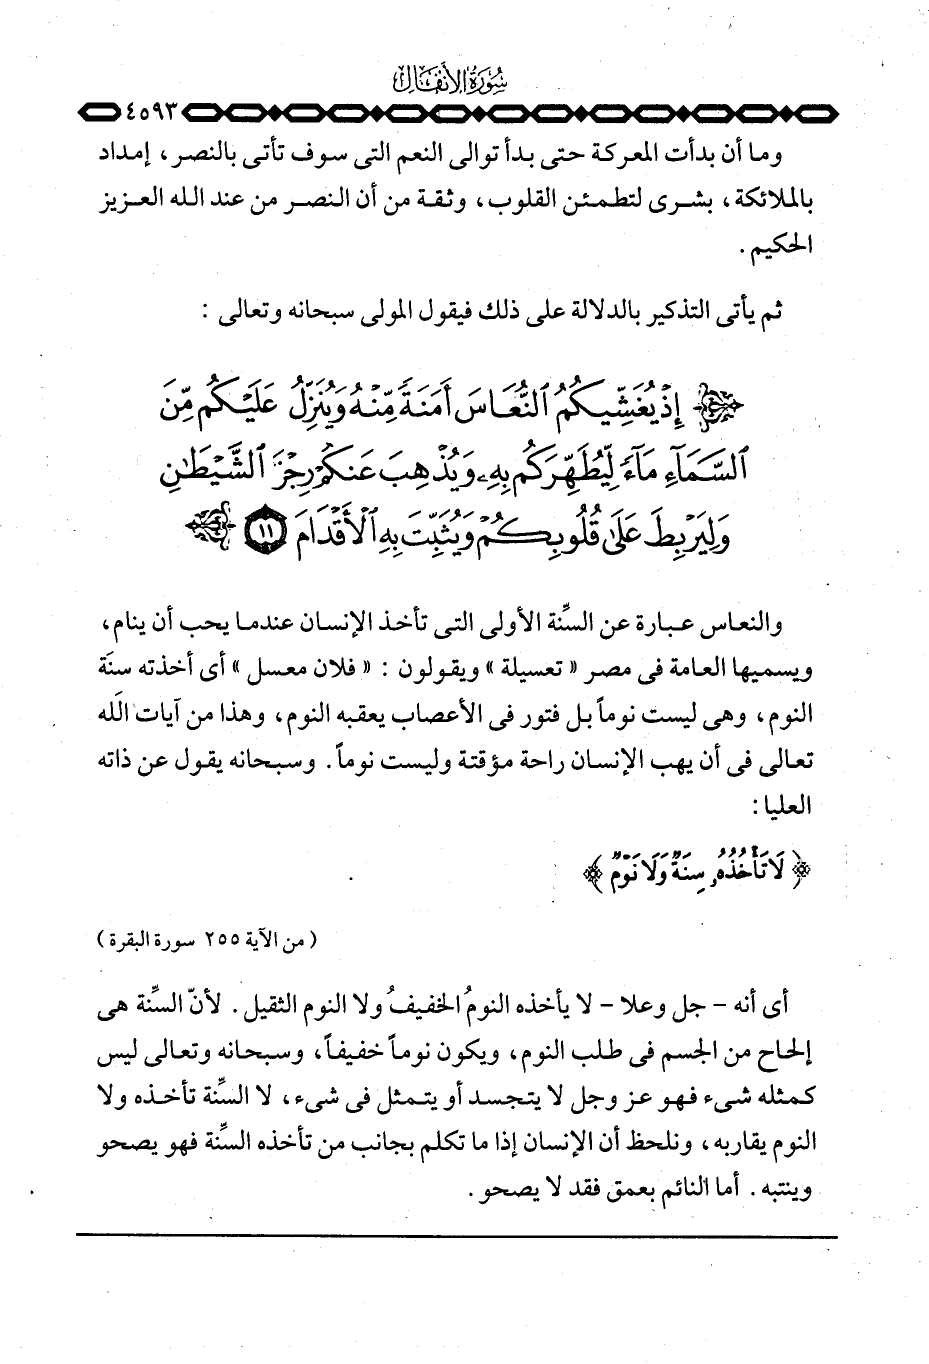 سُورَةُ الأَنفَالِ
٤٥٩٣
وما أن بدأت المعركة حتى بدأ توالى النعم التى سوف تأتى بالنصر، إمداد
بالملائكة، بشرى لتطمئن القلوب، وثقة من أن النصر من عند الله العزيز
الحكيم .
ثم يأتى التذكير بالدلالة على ذلك فيقول المولى سبحانه وتعالى :
إِذْ يُغَشِّيكُمُ ٱلنُّعَاسَ أَمَنَةً مِّنْهُ وَيُنَزِّلُ عَلَيْكُم مِّنَ
ٱلسَّمَآءِ مَآءً لِّيُطَهِّرَكُم بِهِۦ وَيُذْهِبَ عَنكُمْ رِجْزَ ٱلشَّيْطَٰنِ
وَلِيَرْبِطَ عَلَىٰ قُلُوبِكُمْ وَيُثَبِّتَ بِهِ ٱلْأَقْدَامَ ١١
والنعاس عبارة عن السِّنة الأولى التى تأخذ الإنسان عندما يحب أن ينام،
ويسميها العامة فى مصر « تعسيلة » ويقولون : « فلان معسل » أى أخذته سنَة
النوم، وهى ليست نوماً بل فتور فى الأعصاب يعقبه النوم، وهذا من آيات الله
تعالى فى أن يهب الإنسان راحة مؤقتة وليست نوماً. وسبحانه يقول عن ذاته
العليا :
﴿ لَا تَأْخُذُهُۥ سِنَةٌ وَلَا نَوْمٌ ﴾
( من الآية ٢٥٥ سورة البقرة )
أى أنه - جل وعلا - لا يأخذه النومُ الخفيفُ ولا النوم الثقيل . لأنّ السِّنة هى
إلحاح من الجسم فى طلب النوم، ويكون نوماً خفيفاً، وسبحانه وتعالى ليس
كمثله شىء فهو عز وجل لا يتجسد أو يتمثل فى شىء، لا السِّنة تأخذه ولا
النوم يقاربه، ونلحظ أن الإنسان إذا ما تكلم بجانب من تأخذه السِّنة فهو يصحو
وينتبه . أما النائم بعمق فقد لا يصحو .